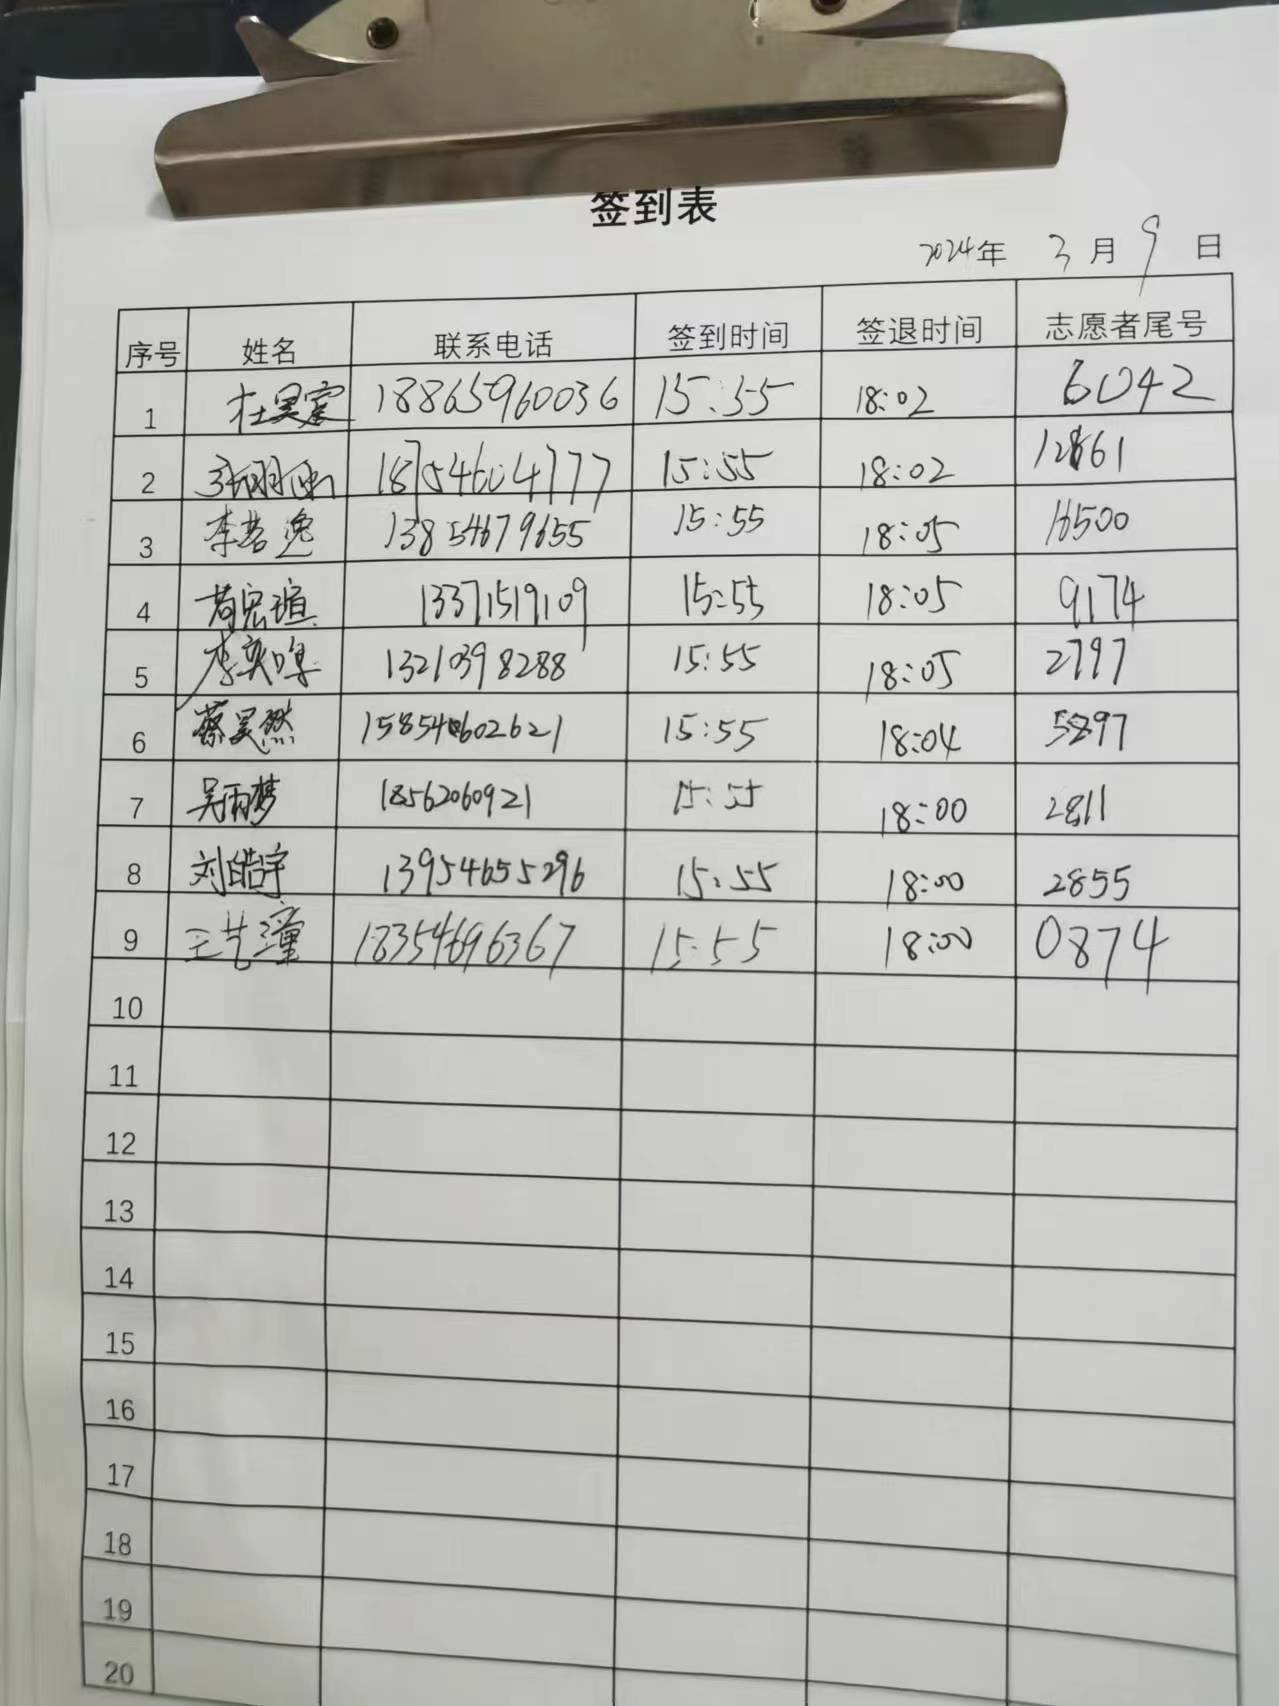 签到表
2024年 3月 9日
序号 姓名 联系电话 签到时间 签退时间 志愿者尾号
1 杜昊宸 18865960036 15:55 18:02 6042
2 18754604777 15:55 18:02 12861
3 李若逸 13854679655 15:55 18:05 16500
4 苟宏瑄 13371519109 15:55 18:05 9174
5 李奕鸣 13210398288 15:55 18:05 2797
6 蔡昊然 15:55 18:04 5897
7 吴雨梦 18562060921 15:55 18:00 2811
8 刘皓宇 13954655296 15:55 18:00 2855
9 王艺潼 18354696367 15:55 18:00 0874
10
11
12
13
14
15
16
17
18
19
20